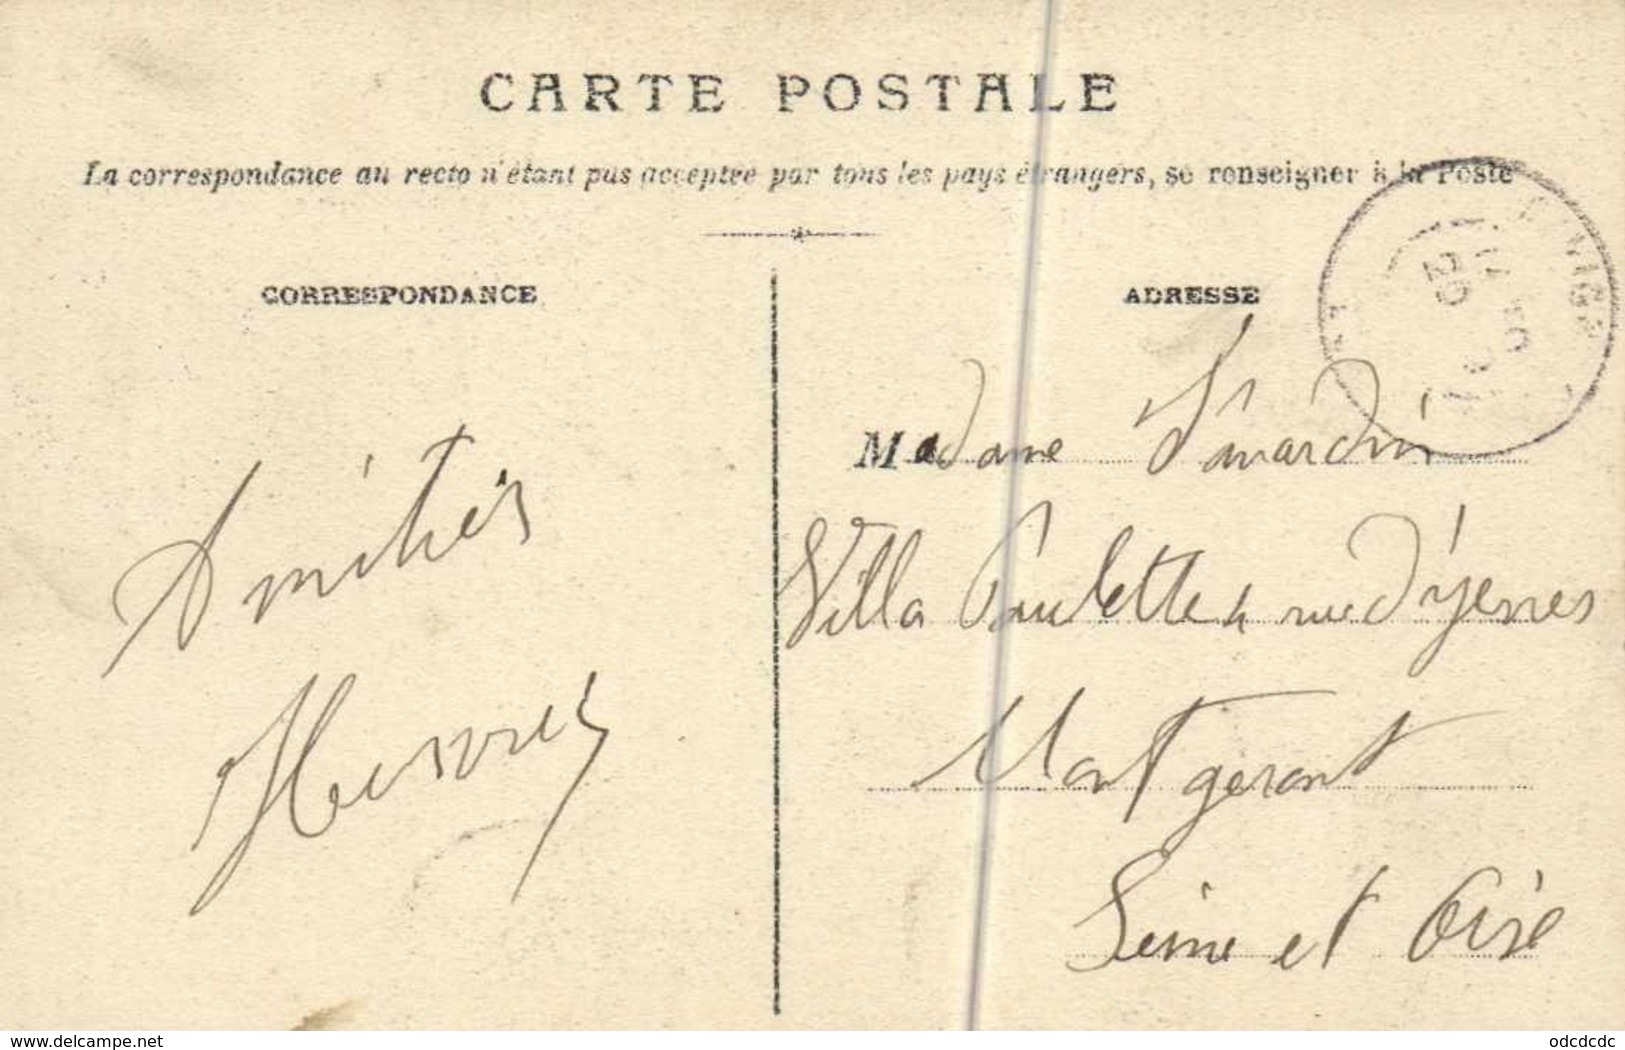 CARTE POSTALE
La correspondance au recto n'étant pas acceptée par tous les pays étrangers, se renseigner à la Poste
CORRESPONDANCE
Amitiés
ADRESSE
Madame
Villa Paulette rue d'yerres
Montgeront
Seine et Oise
www.delcampe.net
odcdcdc